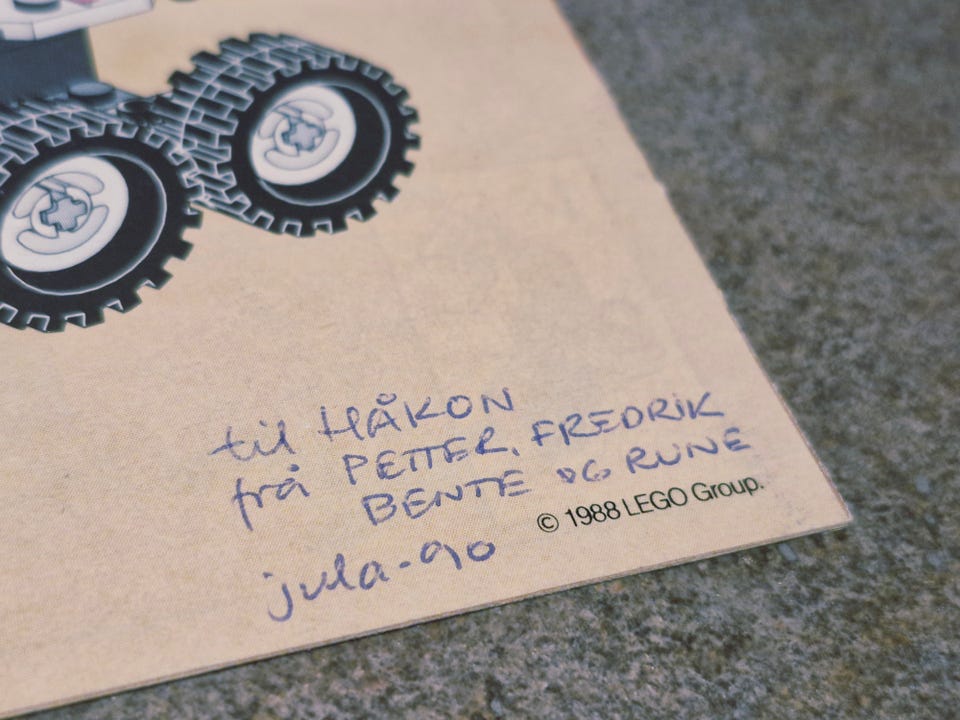 til HÅKON
frå PETTER, FREDRIK
BENTE OG RUNE
© 1988 LEGO Group.
jula-90